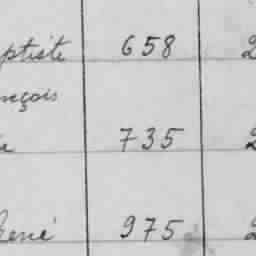 ptiste 658 2
nçois
735 2
René 975 2